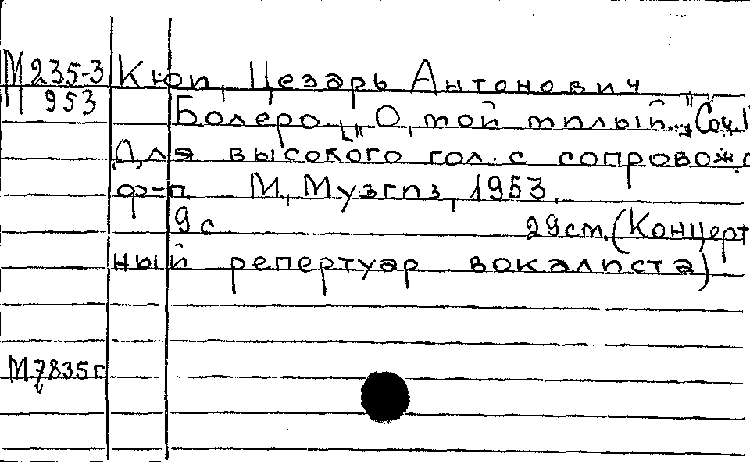 М235-3 Кюи, Цезарь Антонович
М 953
Болеро. [„О, мой милый..." Соч.1
Для высокого гол. с сопровожд
ф-п. М., Музгиз, 1953.
9с 29см. (Концерт
ный репертуар вокалиста)
М7835г